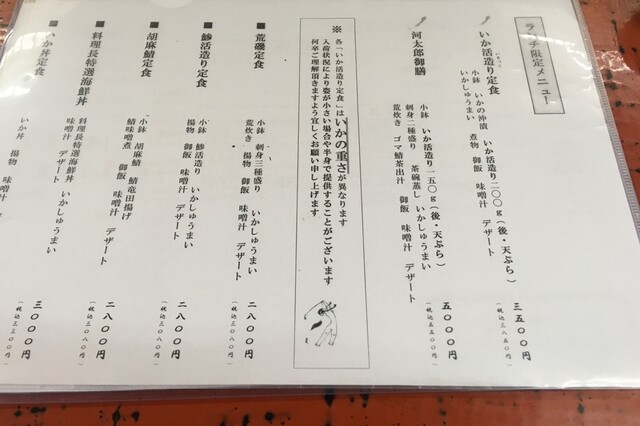 ランチ限定メニュー
いか活造り定食
小鉢 いかの沖漬 いか活造り二〇〇g(後・天ぷら)
いかしゅうまい 煮物 御飯 味噌汁 デザート
三五〇〇円
(税込三八五〇円)
河太郎御膳
小鉢 いか活造り一五〇g(後・天ぷら)
刺身二種盛り 茶碗蒸し いかしゅうまい
荒炊き ゴマ鯖茶出汁 御飯 味噌汁 デザート
五〇〇〇円
(税込五五〇〇円)
※ 各「いか活造り定食」はいかの重さが異なります
入荷状況により姿が小さい場合や半身で提供することがございます
何卒ご理解頂きますよう宜しくお願い申し上げます
■ 荒磯定食
小鉢 刺身三種盛り いかしゅうまい
荒炊き 揚物 御飯 味噌汁 デザート
二八〇〇円
(税込三〇八〇円)
■ 鯵活造り定食
小鉢 鯵活造り いかしゅうまい
揚物 御飯 味噌汁 デザート
二八〇〇円
(税込三〇八〇円)
■ 胡麻鯖定食
小鉢 胡麻鯖 鯖竜田揚げ
鯖味噌煮 御飯 味噌汁 デザート
二八〇〇円
(税込三〇八〇円)
■ 料理長特選海鮮丼
料理長特選海鮮丼 いかしゅうまい
味噌汁 デザート
二八〇〇円
(税込三〇八〇円)
■ いか丼定食
いか丼 揚物 御飯 味噌汁
三〇〇〇円